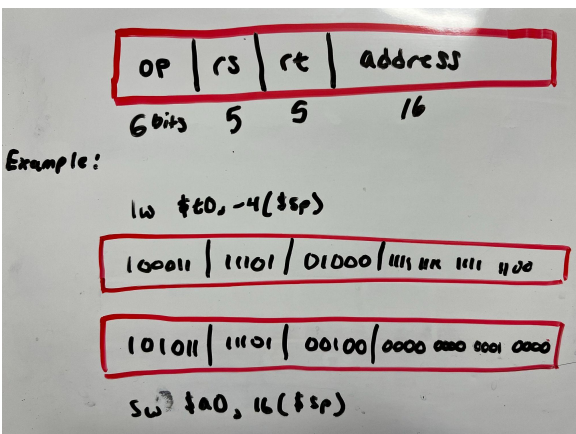 op | rs | rt | address
6 bits 5 5 16
Example:
lw $t0, -4($sp)
100011 | 11101 | 01000 | 1111 1111 1111 1100
101011 | 11101 | 00100 | 0000 0000 0001 0000
sw $a0, 16($sp)